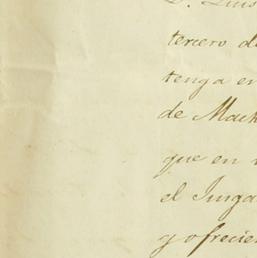 D. Luis
tercero d
tenga en
de Mach
que en
el Juzga
y ofrecien